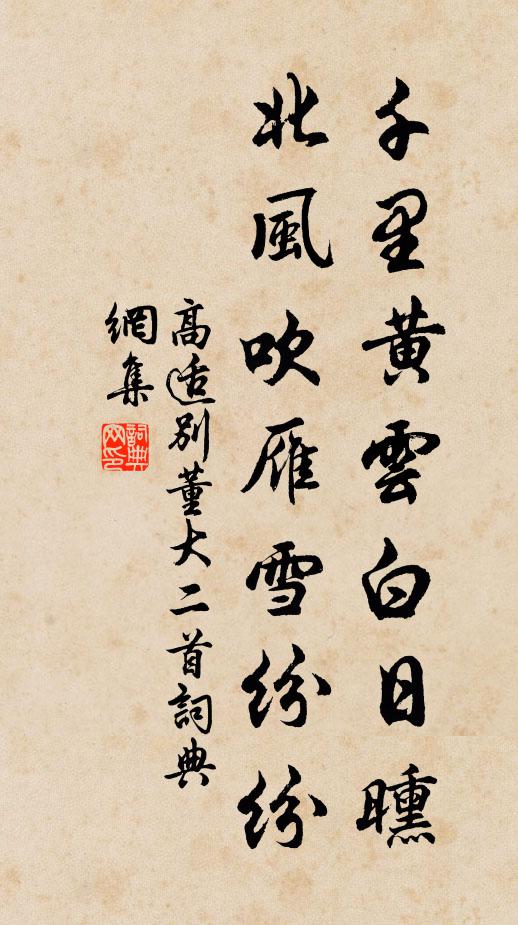 千里黃雲白日曛
北風吹雁雪紛紛
高適別董大二首詞典
網集
詞典網印